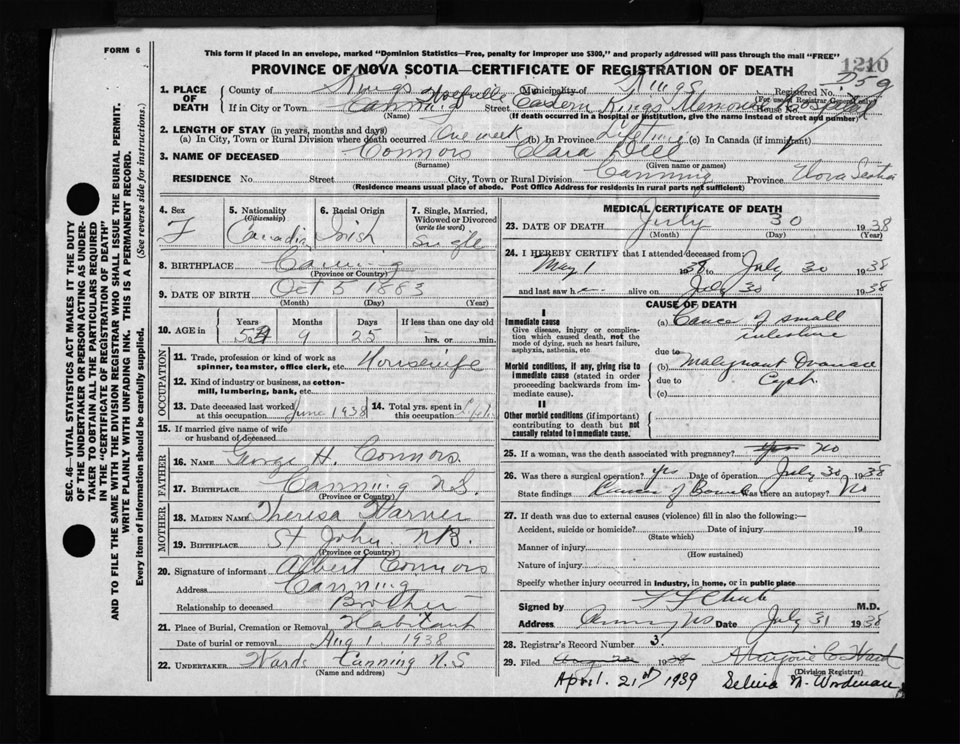 FORM 6
This form if placed in an envelope, marked "Dominion Statistics—Free, penalty for improper use $300," and properly addressed will pass through the mail "FREE"
1210
PROVINCE OF NOVA SCOTIA—CERTIFICATE OF REGISTRATION OF DEATH
1. PLACE OF DEATH
County of Kings Municipality of Kings Registered No. 559
(For use of Registrar General only)
If in City or Town Canning Street Eastern Kings Memorial Hospital House No.
(Name) (If death occurred in a hospital or institution, give the name instead of street and number)
2. LENGTH OF STAY (in years, months and days)
(a) In City, Town or Rural Division where death occurred One week (b) In Province Life time (c) In Canada (if immigrant)
3. NAME OF DECEASED Connors Clara Dell
(Surname) (Given name or names)
RESIDENCE No. Street City, Town or Rural Division Canning Province Nova Scotia
(Residence means usual place of abode. Post Office Address for residents in rural parts not sufficient)
4. Sex F
5. Nationality (Citizenship) Canadian
6. Racial Origin Irish
7. Single, Married, Widowed or Divorced (write the word) single
8. BIRTHPLACE Canning
(Province or Country)
9. DATE OF BIRTH Oct 5 1883
(Month) (Day) (Year)
10. AGE in Years 54 Months 9 Days 25 If less than one day old
hrs. or min.
OCCUPATION
11. Trade, profession or kind of work as spinner, teamster, office clerk, etc. Housewife
12. Kind of industry or business, as cotton-mill, lumbering, bank, etc.
13. Date deceased last worked at this occupation June 1938
14. Total yrs. spent in this occupation
15. If married give name of wife or husband of deceased
FATHER
16. NAME George H. Connors
17. BIRTHPLACE Canning N.S.
(Province or Country)
MOTHER
18. MAIDEN NAME Theresa Harner
19. BIRTHPLACE St John N.B.
(Province or Country)
20. Signature of informant Albert Connors
Address Canning
Relationship to deceased Brother
21. Place of Burial, Cremation or Removal Habitant
Date of burial or removal Aug 1 1938
22. UNDERTAKER Wards Canning N.S
(Name and address)
MEDICAL CERTIFICATE OF DEATH
23. DATE OF DEATH July 30 1938
(Month) (Day) (Year)
24. I HEREBY CERTIFY that I attended deceased from
May 1 1938 to July 30 1938
and last saw her alive on July 30 1938
CAUSE OF DEATH
I
Immediate cause
Give disease, injury or complication which caused death, not the mode of dying, such as heart failure, asphyxia, asthenia, etc
(a) Cancer of small intestine
due to
Morbid conditions, if any, giving rise to immediate cause (stated in order proceeding backwards from immediate cause).
(b) Malignant Ovarian Cyst
due to
(c)
II
Other morbid conditions (if important) contributing to death but not causally related to immediate cause.
25. If a woman, was the death associated with pregnancy? No
26. Was there a surgical operation? yes Date of operation July 30 1938
State findings Cancer of Bowel Was there an autopsy? No
27. If death was due to external causes (violence) fill in also the following:—
Accident, suicide or homicide? Date of injury 19
(State which)
Manner of injury
(How sustained)
Nature of injury
Specify whether injury occurred in industry, in home, or in public place
Signed by M.D.
Address Canning NS Date July 31 1938
28. Registrar's Record Number 3.
29. Filed 1938 Marjorie C Ward
(Division Registrar)
April 21st 1939 Selina N. Wordman
SEC. 46—VITAL STATISTICS ACT MAKES IT THE DUTY
OF THE UNDERTAKER OR PERSON ACTING AS UNDER-
TAKER TO OBTAIN ALL THE PARTICULARS REQUIRED
IN THE "CERTIFICATE OF REGISTRATION OF DEATH"
AND TO FILE THE SAME WITH THE DIVISION REGISTRAR WHO SHALL ISSUE THE BURIAL PERMIT.
WRITE PLAINLY WITH UNFADING INK. THIS IS A PERMANENT RECORD.
Every item of information should be carefully supplied. (See reverse side for instructions.)